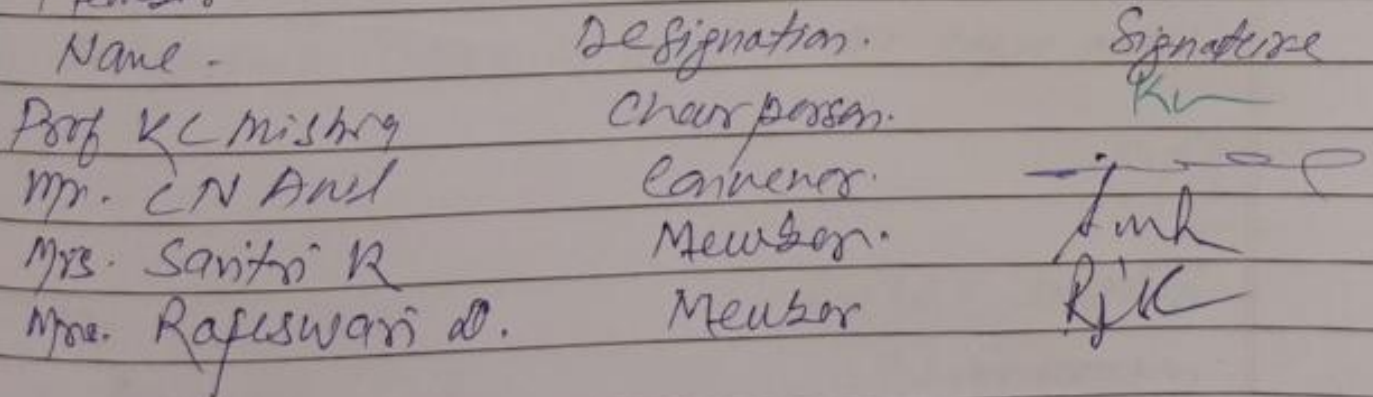 Name - Designation. Signature
Prof K C Mishra Chairperson.
Mr. C N Anil Convener.
Mrs. Savitri R Member.
Mrs. Rajeswari D. Member